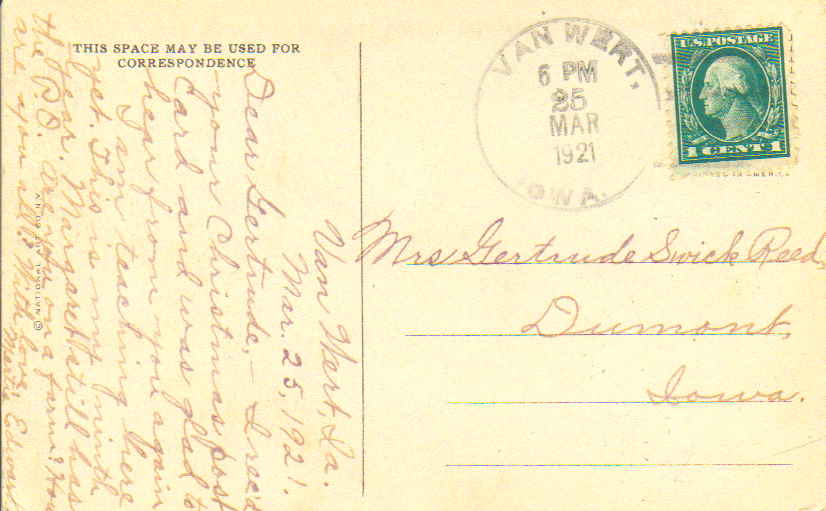 THIS SPACE MAY BE USED FOR
CORRESPONDENCE
Van Wert, Ia.
Mar. 25, 1921.
Dear Gertrude,— I rec'd
your Christmas post
card and was glad to
hear from you again
I am teaching here
yet. This is my ninth
year. Margaret still has
the P.O. Are you on a farm? How
are you all? With love,
© NATIONAL ART CO. N.Y.
VAN WERT,
6 PM
25
MAR
1921
IOWA.
U.S. POSTAGE
1 CENT 1
Mrs Gertrude Swick Reed,
Dumont,
Iowa.